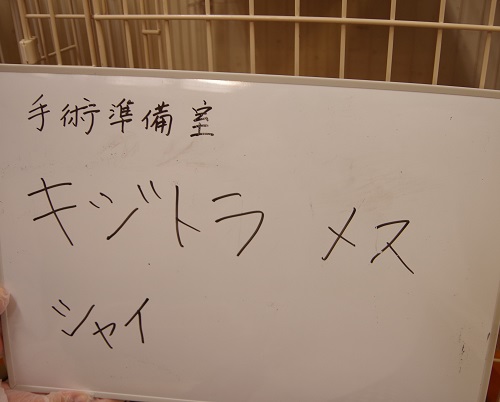 手術準備室
キジトラ メス
シャイ